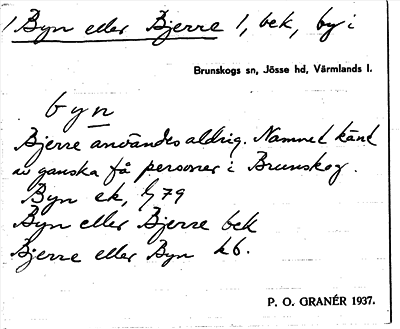 1 Byn eller Bjerre 1, bek, by i
Brunskogs sn, Jösse hd, Värmlands l.
byn
Bjerre användes aldrig. Namnet känd
av ganska få personer i Brunskog.
Byn ek, by 79
Byn eller Bjerre bek
Bjerre eller Byn kb.
P. O. GRANÉR 1937.